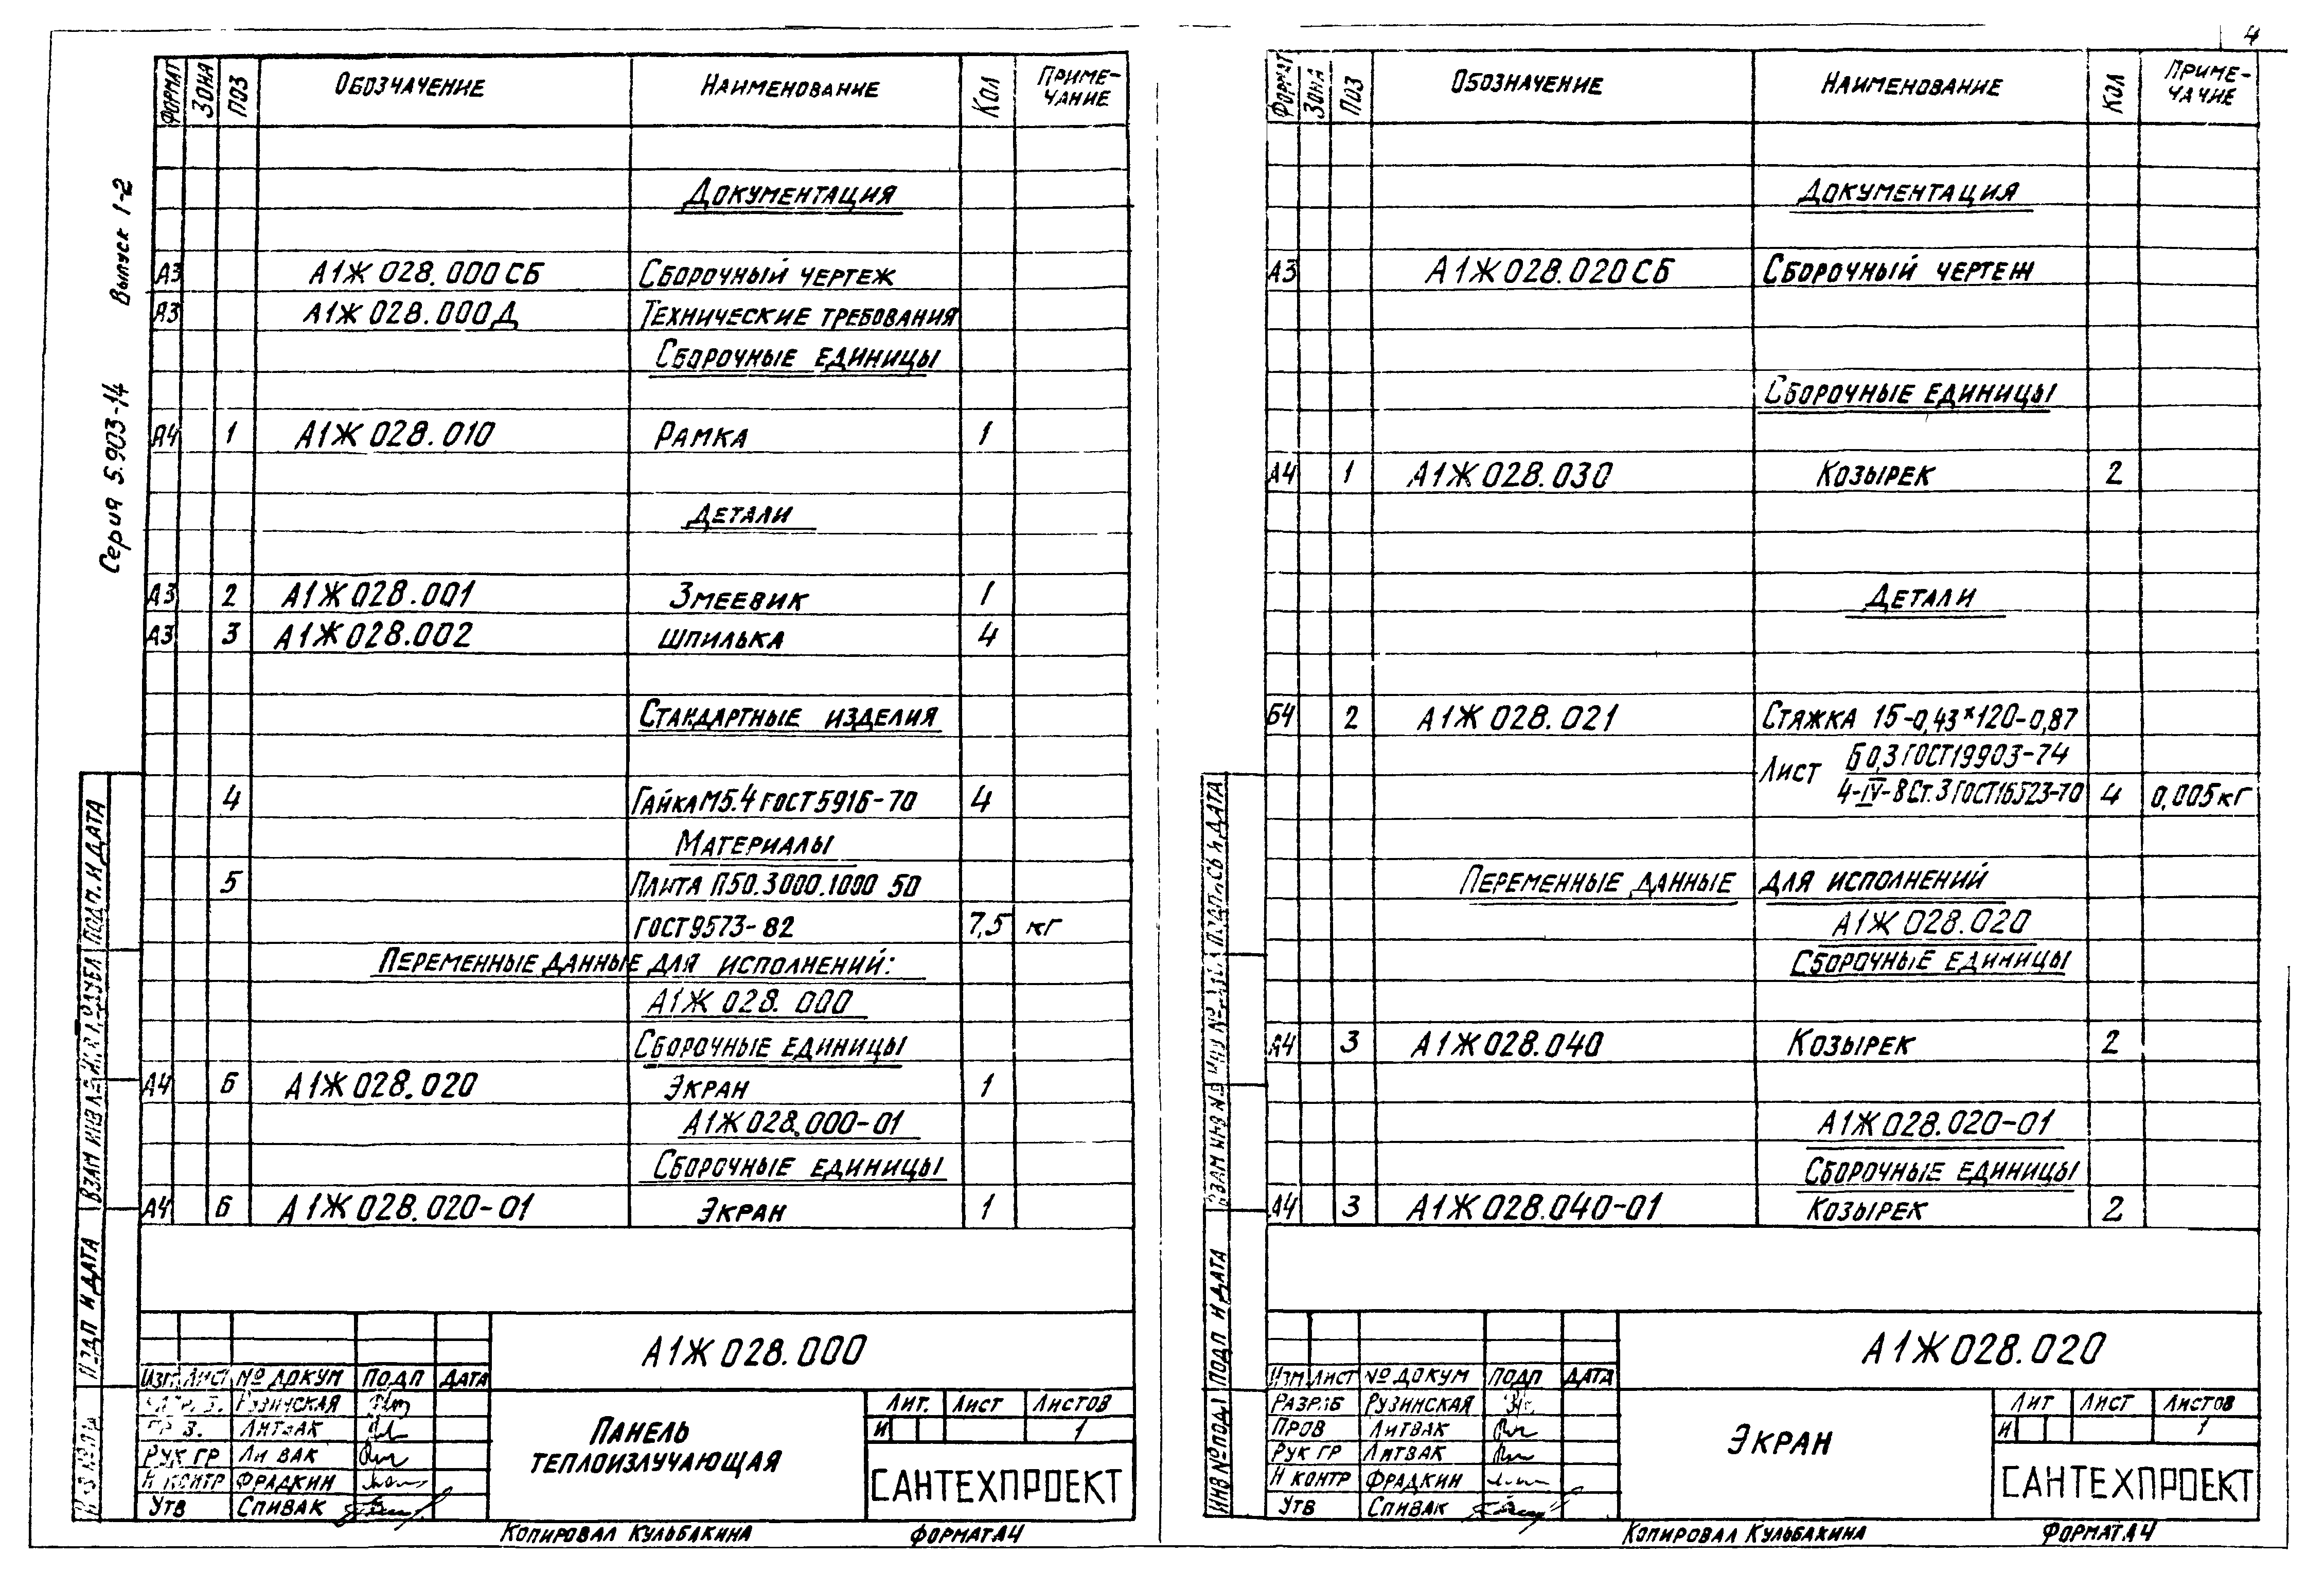 4
Серия 5.903-14 Выпуск 1-2
ФОРМАТ ЗОНА ПОЗ ОБОЗНАЧЕНИЕ НАИМЕНОВАНИЕ КОЛ ПРИМЕ-
ЧАНИЕ
ДОКУМЕНТАЦИЯ
А3 А1Ж 028.000 СБ СБОРОЧНЫЙ ЧЕРТЕЖ
А3 А1Ж 028.000 Д ТЕХНИЧЕСКИЕ ТРЕБОВАНИЯ
СБОРОЧНЫЕ ЕДИНИЦЫ
А4 1 А1Ж 028.010 РАМКА 1
ДЕТАЛИ
А3 2 А1Ж 028.001 ЗМЕЕВИК 1
А3 3 А1Ж 028.002 ШПИЛЬКА 4
СТАНДАРТНЫЕ ИЗДЕЛИЯ
4 ГАЙКА М5.4 ГОСТ 5916-70 4
МАТЕРИАЛЫ
5 ПЛИТА П50.3000.1000 50
ГОСТ 9573-82 7,5 кг
ПЕРЕМЕННЫЕ ДАННЫЕ ДЛЯ ИСПОЛНЕНИЙ:
А1Ж 028. 000
СБОРОЧНЫЕ ЕДИНИЦЫ
А4 6 А1Ж 028.020 ЭКРАН 1
А1Ж 028.000-01
СБОРОЧНЫЕ ЕДИНИЦЫ
А4 6 А1Ж 028.020-01 ЭКРАН 1
ПОДП. И ДАТА
ВЗАМ ИНВ
ПОДП И ДАТА
А1Ж 028.000
ИЗМ ЛИСТ № ДОКУМ ПОДП ДАТА
РУЗИНСКАЯ
ЛИТВАК
РУК ГР ЛИ ВАК
Н КОНТР ФРАДКИН
УТВ СПИВАК
ПАНЕЛЬ
ТЕПЛОИЗЛУЧАЮЩАЯ
ЛИТ. ЛИСТ ЛИСТОВ
И 1
САНТЕХПРОЕКТ
КОПИРОВАЛ КУЛЬБАКИНА ФОРМАТ А4
ФОРМАТ ЗОНА ПОЗ ОБОЗНАЧЕНИЕ НАИМЕНОВАНИЕ КОЛ ПРИМЕ-
ЧАНИЕ
ДОКУМЕНТАЦИЯ
А3 А1Ж 028.020 СБ СБОРОЧНЫЙ ЧЕРТЕЖ
СБОРОЧНЫЕ ЕДИНИЦЫ
А4 1 А1Ж 028.030 КОЗЫРЕК 2
ДЕТАЛИ
Б4 2 А1Ж 028.021 СТЯЖКА 15-0,43×120-0,87
ЛИСТ Б 0,3 ГОСТ 19903-74
4-IV-8 Ст.3 ГОСТ 16523-70 4 0,005 кг
ПЕРЕМЕННЫЕ ДАННЫЕ ДЛЯ ИСПОЛНЕНИЙ
А1Ж 028.020
СБОРОЧНЫЕ ЕДИНИЦЫ
А4 3 А1Ж 028.040 КОЗЫРЕК 2
А1Ж 028.020-01
СБОРОЧНЫЕ ЕДИНИЦЫ
А4 3 А1Ж 028.040-01 КОЗЫРЕК 2
ВЗАМ ИНВ №
ПОДП И ДАТА
ИНВ № ПОДЛ
А1Ж 028.020
ИЗМ ЛИСТ № ДОКУМ ПОДП ДАТА
РАЗРАБ РУЗИНСКАЯ
ПРОВ ЛИТВАК
РУК ГР ЛИТВАК
Н КОНТР ФРАДКИН
УТВ СПИВАК
ЭКРАН
ЛИТ ЛИСТ ЛИСТОВ
И 1
САНТЕХПРОЕКТ
КОПИРОВАЛ КУЛЬБАКИНА ФОРМАТ А4